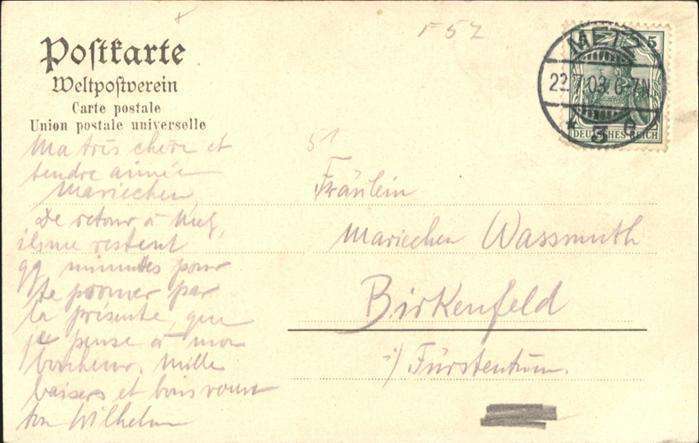 r 52
Postkarte
Weltpostverein
Carte postale
Union postale universelle
METZ
5
22. 7.03. 6-7N
* 3 e
DEUTSCHES REICH
51
Ma très chère et
tendre aimée
Mariechen,
De retour à Metz,
il me restent
qq minuttes pour
te prouver par
la présente, que
je pense à mon
bonheur. Mille
baisers et bons
ton Wilhelm
Fräulein
Mariechen Wassmuth
Birkenfeld
i/ Fürstentum.